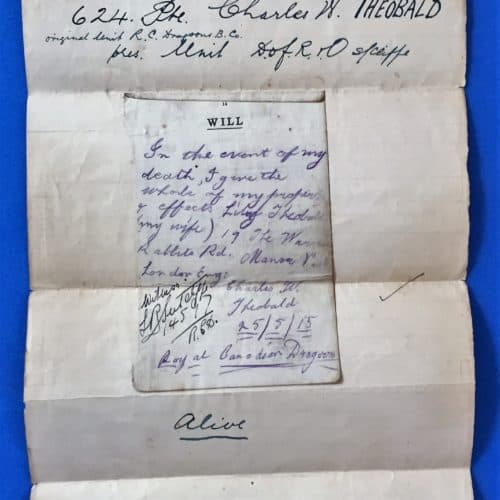 624. Pte. Charles W. THEOBALD
original Unit R. C. Dragoons B. Co.
pres. Unit D of R. & O
14
WILL
In the event of my
death, I give the
whole of my
& effects
(my wife) 19 The
Rd. Manor
London Eng:
witness
Charles W.
Theobald
25/5/15
Royal Canadian Dragoons
Alive